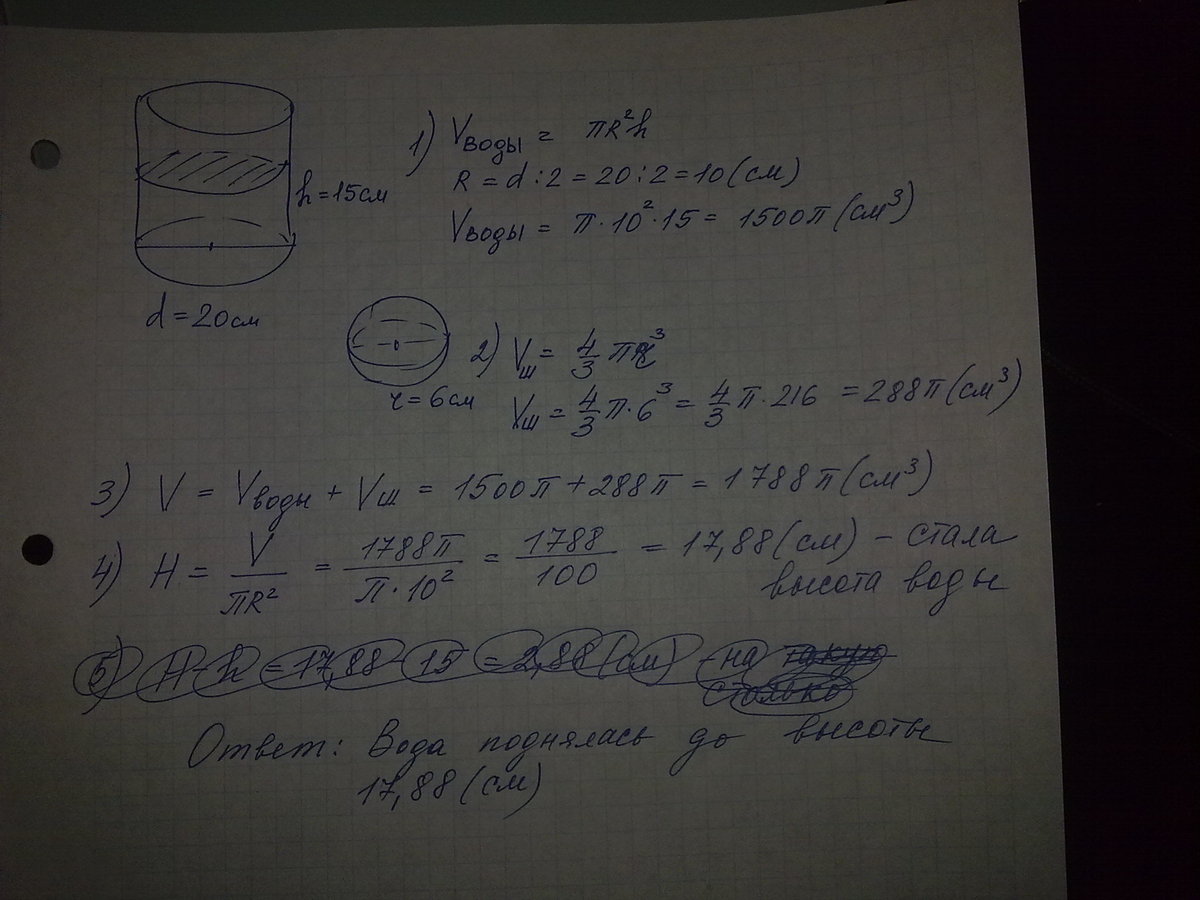 1) Vводы = πR²h
R = d : 2 = 20 : 2 = 10 (см)
h = 15 см
Vводы = π · 10² · 15 = 1500π (см³)
d = 20 см
2) Vш = 4/3 πR³
r = 6 см
Vш = 4/3 π · 6³ = 4/3 π · 216 = 288π (см³)
3) V = Vводы + Vш = 1500π + 288π = 1788π (см³)
4) H = V/πR² = 1788π/π · 10² = 1788/100 = 17,88 (см) – стала
высота воды
5) H – h = 17,88 – 15 = 2,88 (см) – на
столько
Ответ: Вода поднялась до высоты
17,88 (см)